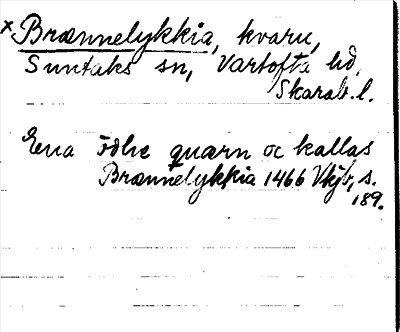 x Brænnelykkia, kvarn,
Suntaks sn, Vartofta hd,
Skarab. l.
Ena ödhe quarn oc kallas
Brænnelykkia 1466 Vkjb, s.
189.